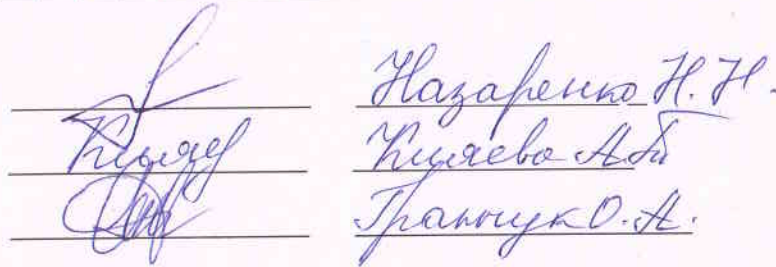 Назаренко Н. Н.
Кияева А.Б
Гранчук О. А.